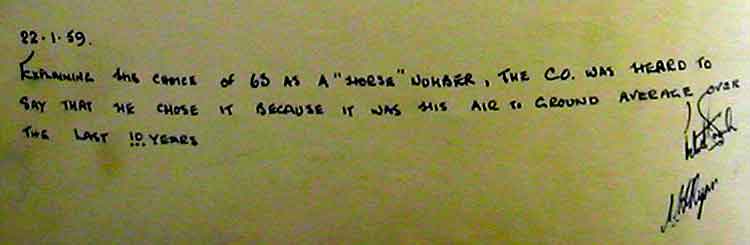 22·1·59.
EXPLAINING THE CHOICE OF 63 AS A "HORSE" NUMBER, THE C.O. WAS HEARD TO
SAY THAT HE CHOSE IT BECAUSE IT WAS HIS AIR TO GROUND AVERAGE OVER
THE LAST 10 YEARS